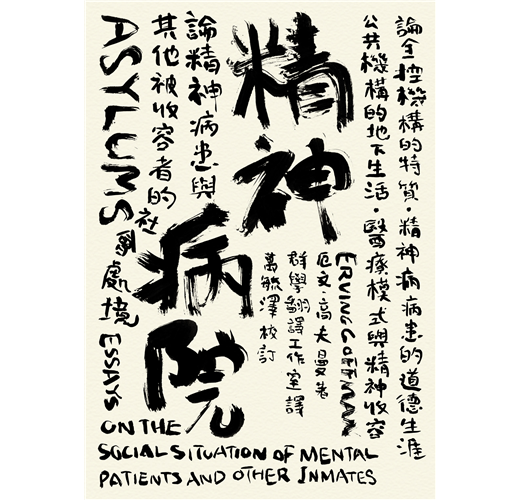 論全控機構的特質·精神病病患的道德生涯
公共機構的地下生活·醫療模式與精神收容
精神
病院
ERVING GOFFMAN
厄文·高夫曼著
群學翻譯工作室譯
萬毓澤校訂
論精神病患與
其他被收容者的社會處境
ASYLUMS
ESSAYS
ON THE
SOCIAL SITUATION OF MENTAL
PATIENTS AND OTHER INMATES